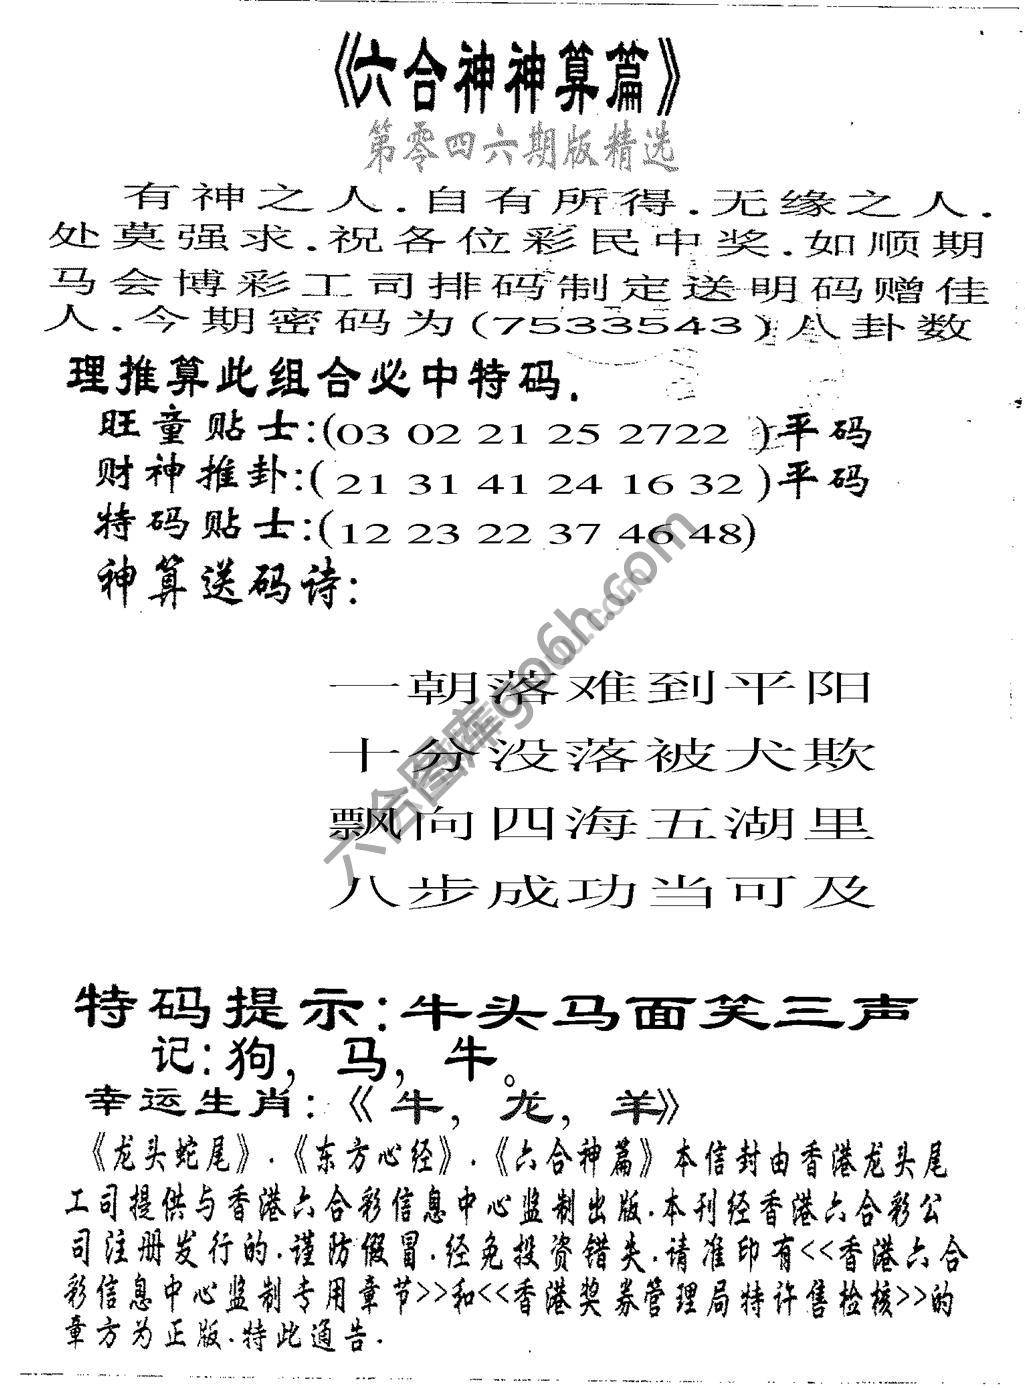 《六合神神算篇》
第零四六期版精选
有神之人.自有所得.无缘之人.
处莫强求.祝各位彩民中奖.如顺期
马会博彩工司排码制定送明码赠佳
人.今期密码为(7533543)八卦数
理推算此组合必中特码.
旺童贴士:(03 02 21 25 2722 )平码
财神推卦:(21 31 41 24 16 32)平码
特码贴士:(12 23 22 37 46 48)
神算送码诗:
一朝落难到平阳
十分没落被犬欺
飘向四海五湖里
八步成功当可及
特码提示:牛头马面笑三声
记:狗,马,牛。
幸运生肖:《牛,龙,羊》
《龙头蛇尾》.《东方心经》.《六合神篇》本信封由香港龙头尾
工司提供与香港六合彩信息中心监制出版.本刊经香港六合彩公
司注册发行的.谨防假冒.经免投资错失.请准印有<<香港六合
彩信息中心监制专用章节>>和<<香港奖券管理局特许售检核>>的
章方为正版.特此通告.
六合图库go6h.com